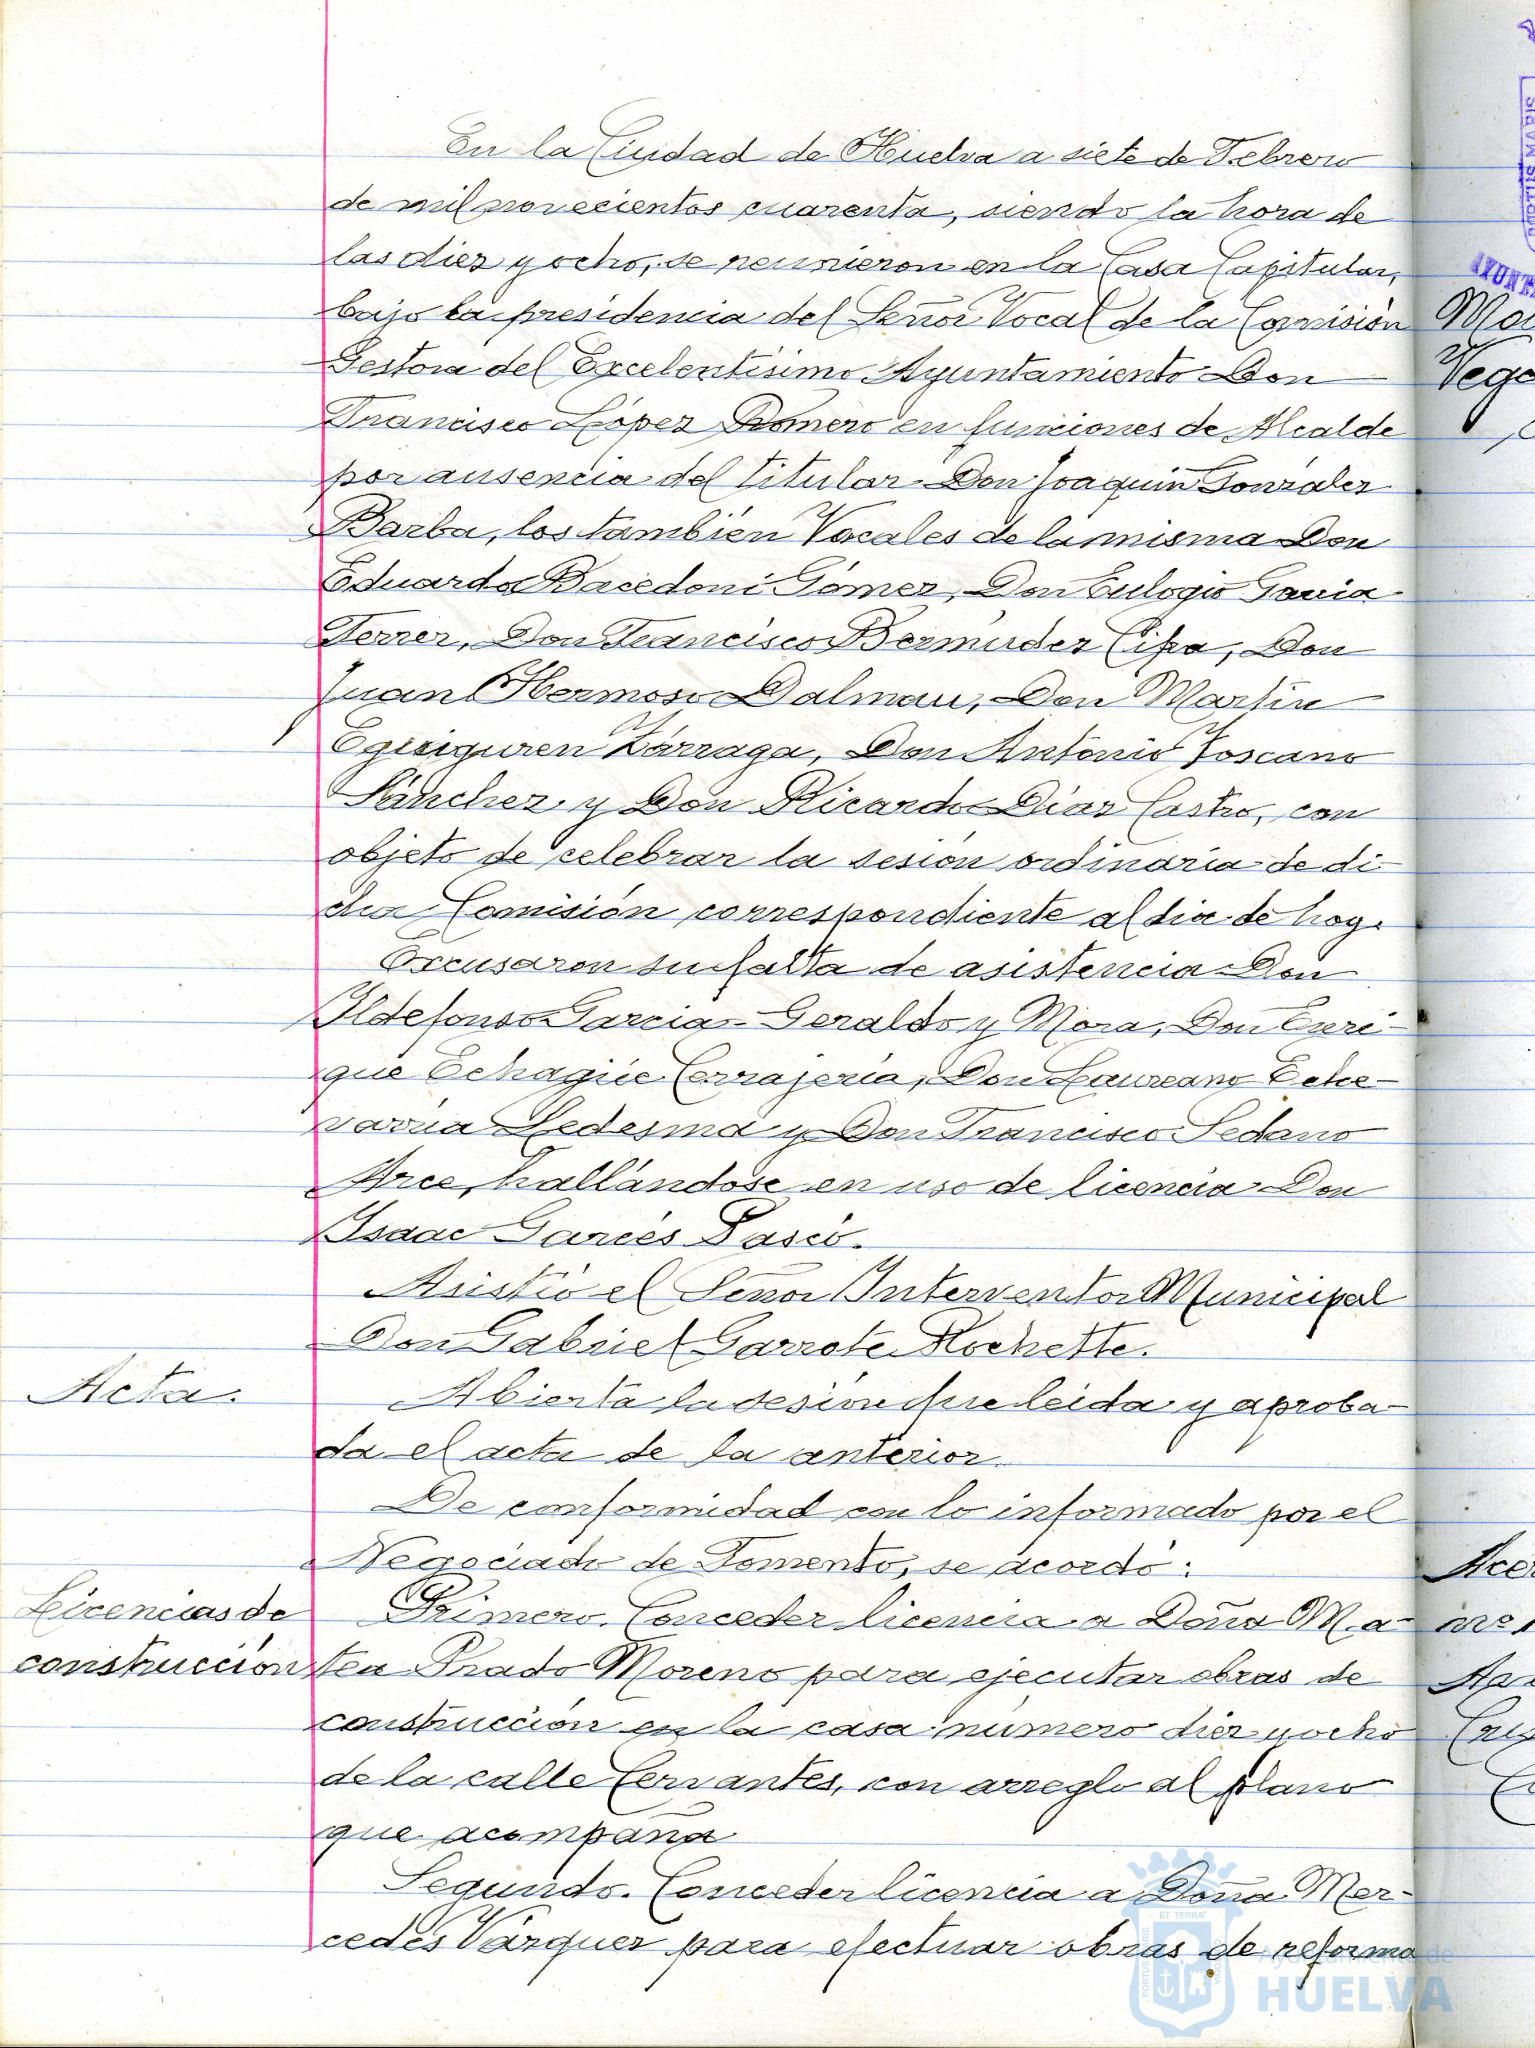 En la Ciudad de Huelva a siete de Febrero
de mil novecientos cuarenta, siendo la hora de
las diez y ocho, se reunieron en la Casa Capitular,
bajo la presidencia del Señor Vocal de la Comisión
Gestora del Excelentísimo Ayuntamiento Don
Francisco López Romero en funciones de Alcalde
por ausencia del titular Don Joaquín González
Barba, los también Vocales de la misma Don
Eduardo Bacedoni Gómez, Don Eulogio Gavia
Ferrer, Don Francisco Bermúdez Cipa, Don
Juan Hermoso Dalmau, Don Martín
Eguiguren Zárraga, Don Antonio Toscano
Sánchez y Don Ricardo Díaz Castro, con
objeto de celebrar la sesión ordinaria de di-
cha Comisión correspondiente al día de hoy.
Excusaron su falta de asistencia Don
Ildefonso García-Geraldo y Mora, Don Enri-
que Echagüe Cerrajería, Don Laureano Eche-
varria Ledesma y Don Francisco Sedano
Arce, hallándose en uso de licencia Don
Isaac Garcés Pasció.
Asistió el Señor Interventor Municipal
Don Gabriel Garrote Rochette.
Acta.
Abierta la sesión fue leída y aproba-
da el acta de la anterior.
De conformidad con lo informado por el
Negociado de Fomento, se acordó:
Licencias de
construcción
Primero. Conceder licencia a Doña Ma-
tea Prado Moreno para ejecutar obras de
construcción en la casa número diez y ocho
de la calle Cervantes, con arreglo al plano
que acompaña
Segundo. Conceder licencia a Doña Mer-
cedes Vázquez para efectuar obras de reforma
Ayuntamiento de
HUELVA